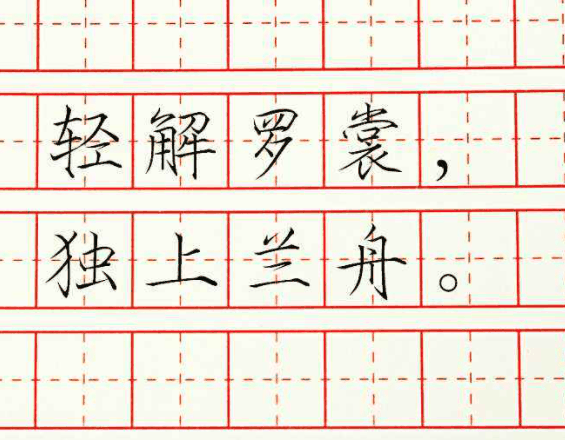 轻解罗裳，
独上兰舟。